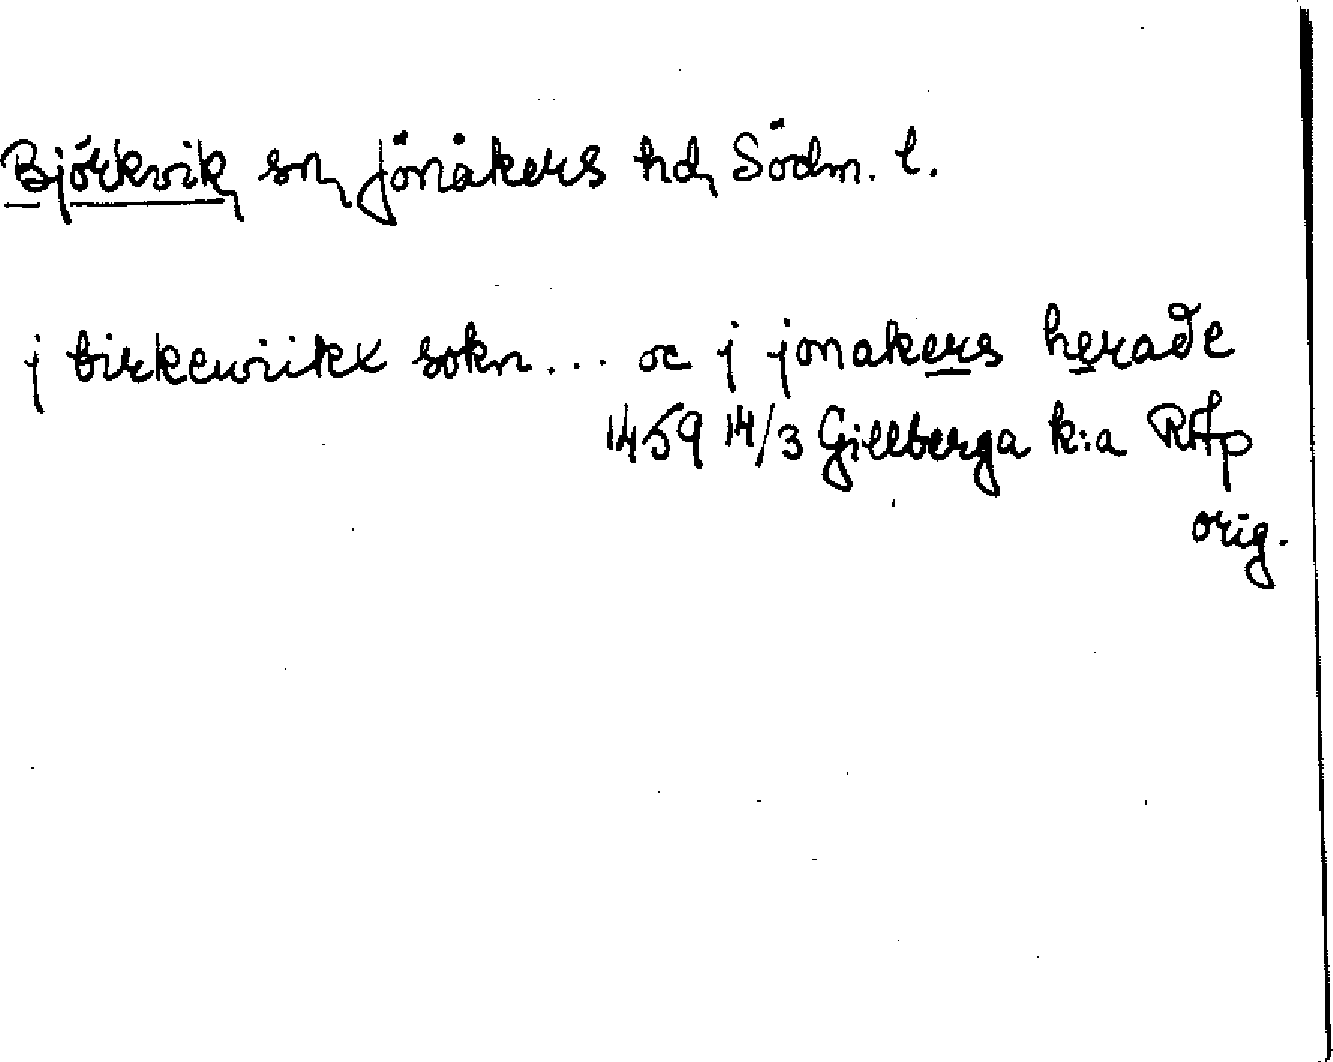 Björkvik, sn, Jönåkers hd, Södm. l.
j birkewiikx sokn... oc j jonakers heradhe
1459 14/3 Gillberga k:a RAp
orig.